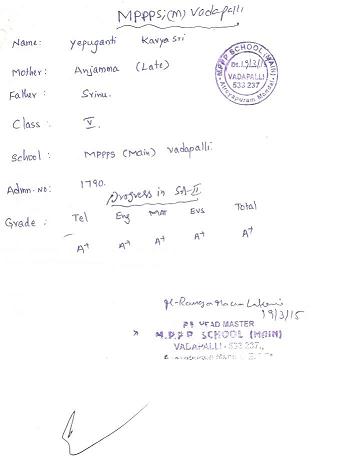 MPPPS,(M) Vadapalli
Name: Yepuganti Kavya Sri
Mother: Anjamma (Late)
Father: Srinu.
Class: V.
School: MPPPS (Main) Vadapalli.
Admn. No: 1790.
Progress in SA-II
Grade: Tel Eng Mat EVS Total
A+ A+ A+ A+ A+
MPPP SCHOOL (MAIN)
Dt. 19/3/15
VADAPALLI
533 237
Atreyapuram Mandal
19/3/15
HEAD MASTER
M.P.P.P SCHOOL (MAIN)
VADAPALLI - 533 237.